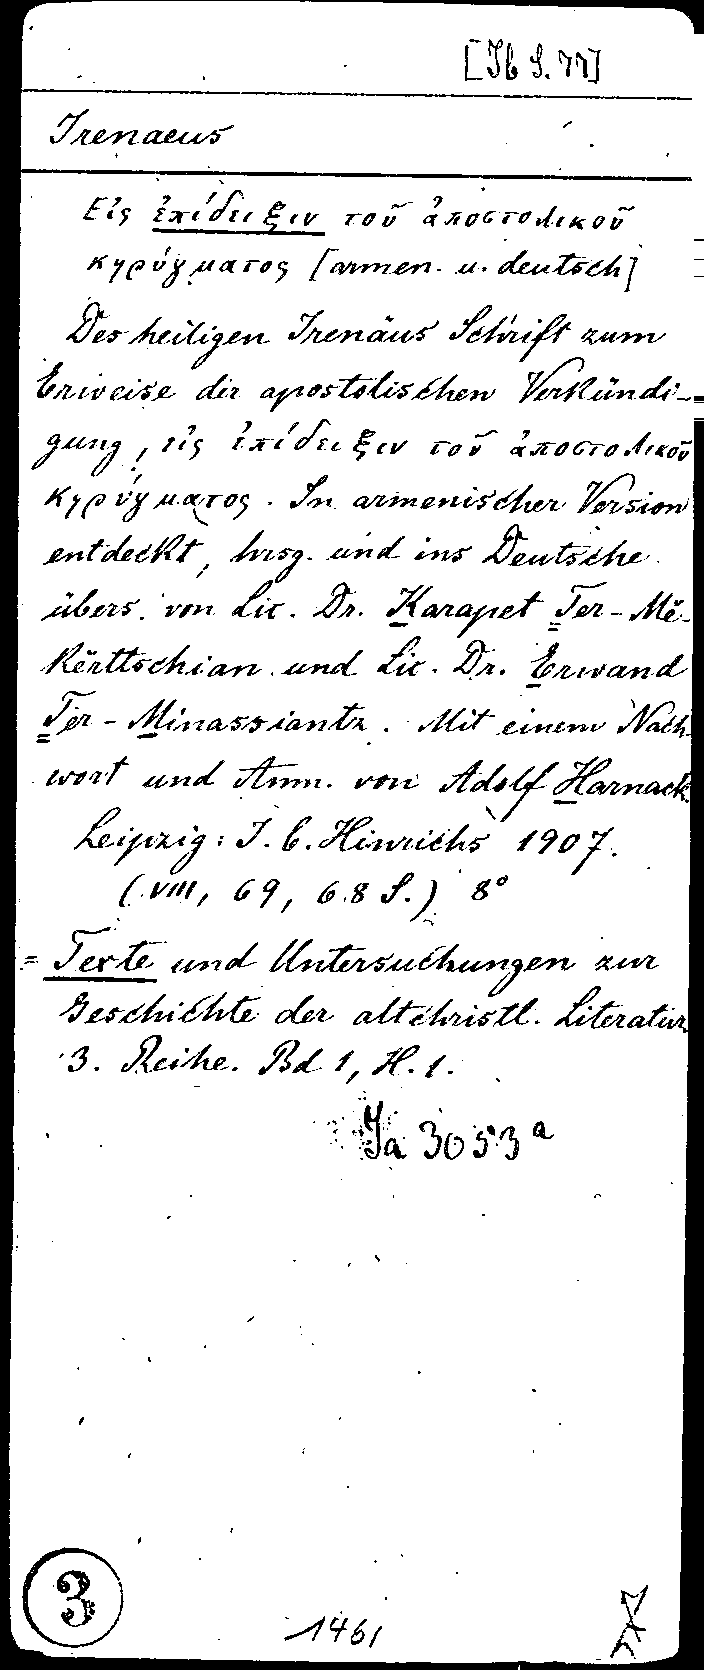 [Ib S. 77]
Irenaeus
Εἰς ἐπίδειξιν τοῦ ἀποστολικοῦ
κηρύγματος [armen. u. deutsch]
Des heiligen Irenäus Schrift zum
Erweise der apostolischen Verkündi-
gung, εἰς ἐπίδειξιν τοῦ ἀποστολικοῦ
κηρύγματος. In armenischer Version
entdeckt, hrsg. und ins Deutsche
übers. von Lic. Dr. Karapet Ter-Mĕ-
kĕrttschian und Lic. Dr. Erwand
Ter-Minassiantz. Mit einem Nach-
wort und Anm. von Adolf Harnack.
Leipzig: J. C. Hinrichs 1907.
(VIII, 69, 68 S.) 8°
= Texte und Untersuchungen zur
Geschichte der altchristl. Literatur
3. Reihe. Bd 1, H. 1.
Ia 3053 a
3
1461